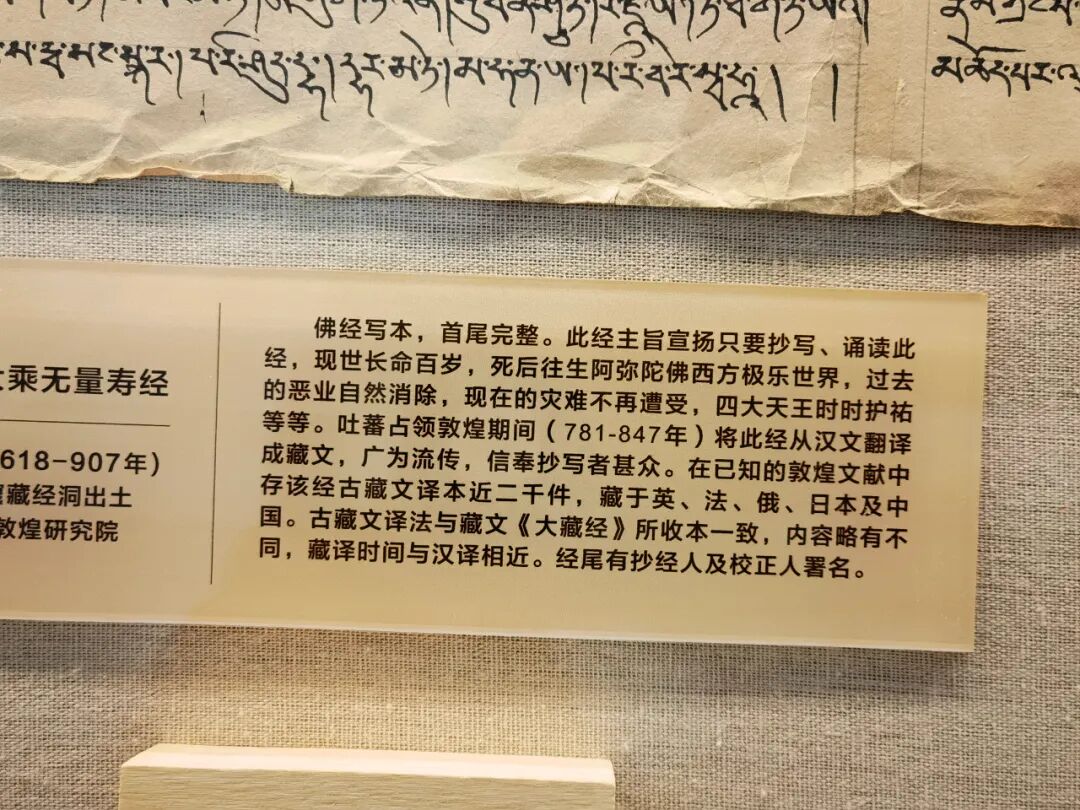 པ་རི་ཤུད་དྷ།དྷར་མ་ཏེ།མ་ཧ་ན་ཡ།པ་རི་བ་རེ་སྭ་ཧཱ།།
མཆོད་པར་
佛经写本，首尾完整。此经主旨宣扬只要抄写、诵读此
经，现世长命百岁，死后往生阿弥陀佛西方极乐世界，过去
的恶业自然消除，现在的灾难不再遭受，四大天王时时护祐
等等。吐蕃占领敦煌期间（781-847年）将此经从汉文翻译
成藏文，广为流传，信奉抄写者甚众。在已知的敦煌文献中
存该经古藏文译本近二千件，藏于英、法、俄、日本及中
国。古藏文译法与藏文《大藏经》所收本一致，内容略有不
同，藏译时间与汉译相近。经尾有抄经人及校正人署名。
乘无量寿经
618-907年）
藏经洞出土
敦煌研究院